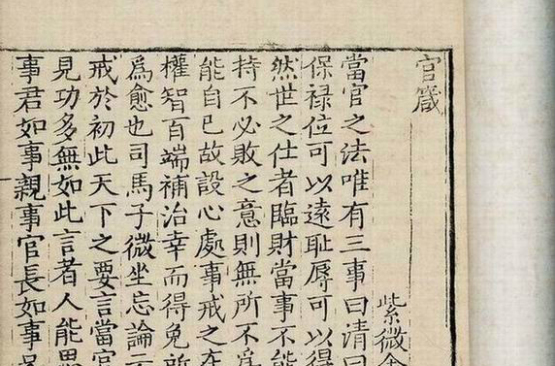 官箴
紫微
當官之法唯有三事曰清曰
保禄位可以遠恥辱可以得
然世之仕者臨財當事不能
持不必敗之意則無所不為
能自已故設心處事戒之在
權智百端補治幸而得免所
為愈也司馬子微坐忘論云
戒於初此天下之要言當官
見功多無如此言者人能思
事君如事親事官長如事